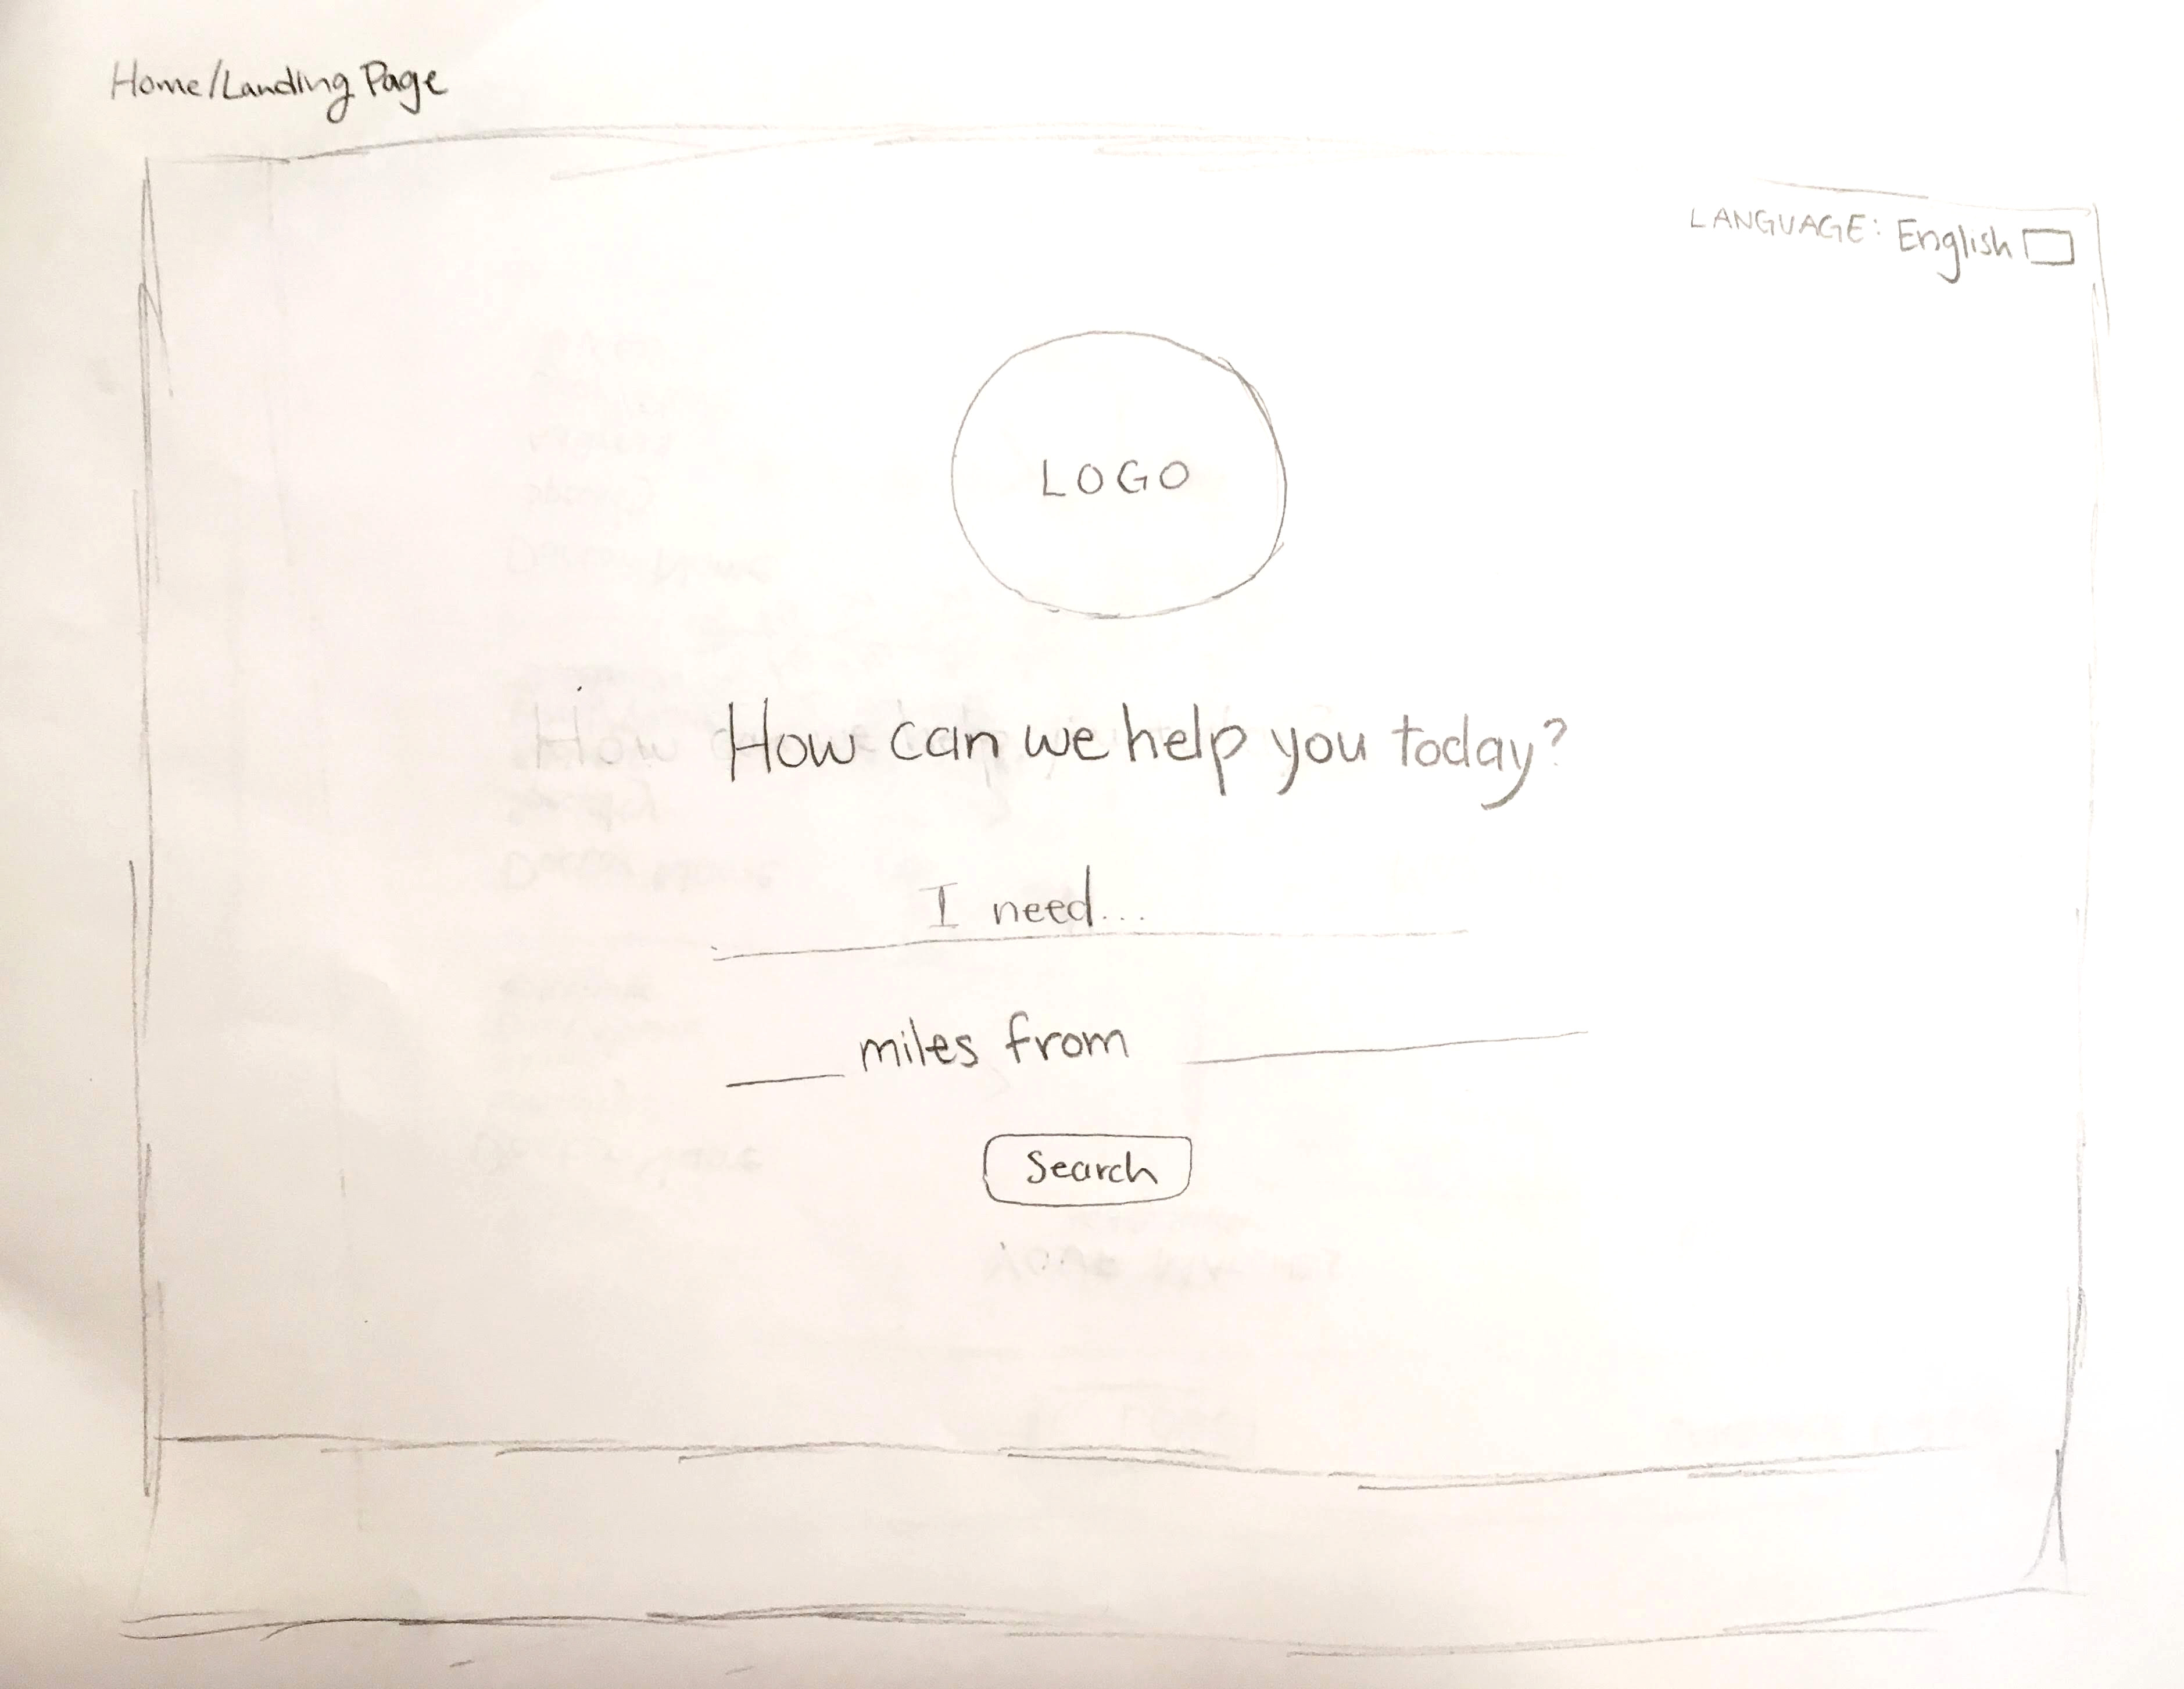 Home/Landing Page
LANGUAGE: English
LOGO
How can we help you today?
I need...
___ miles from ______
Search